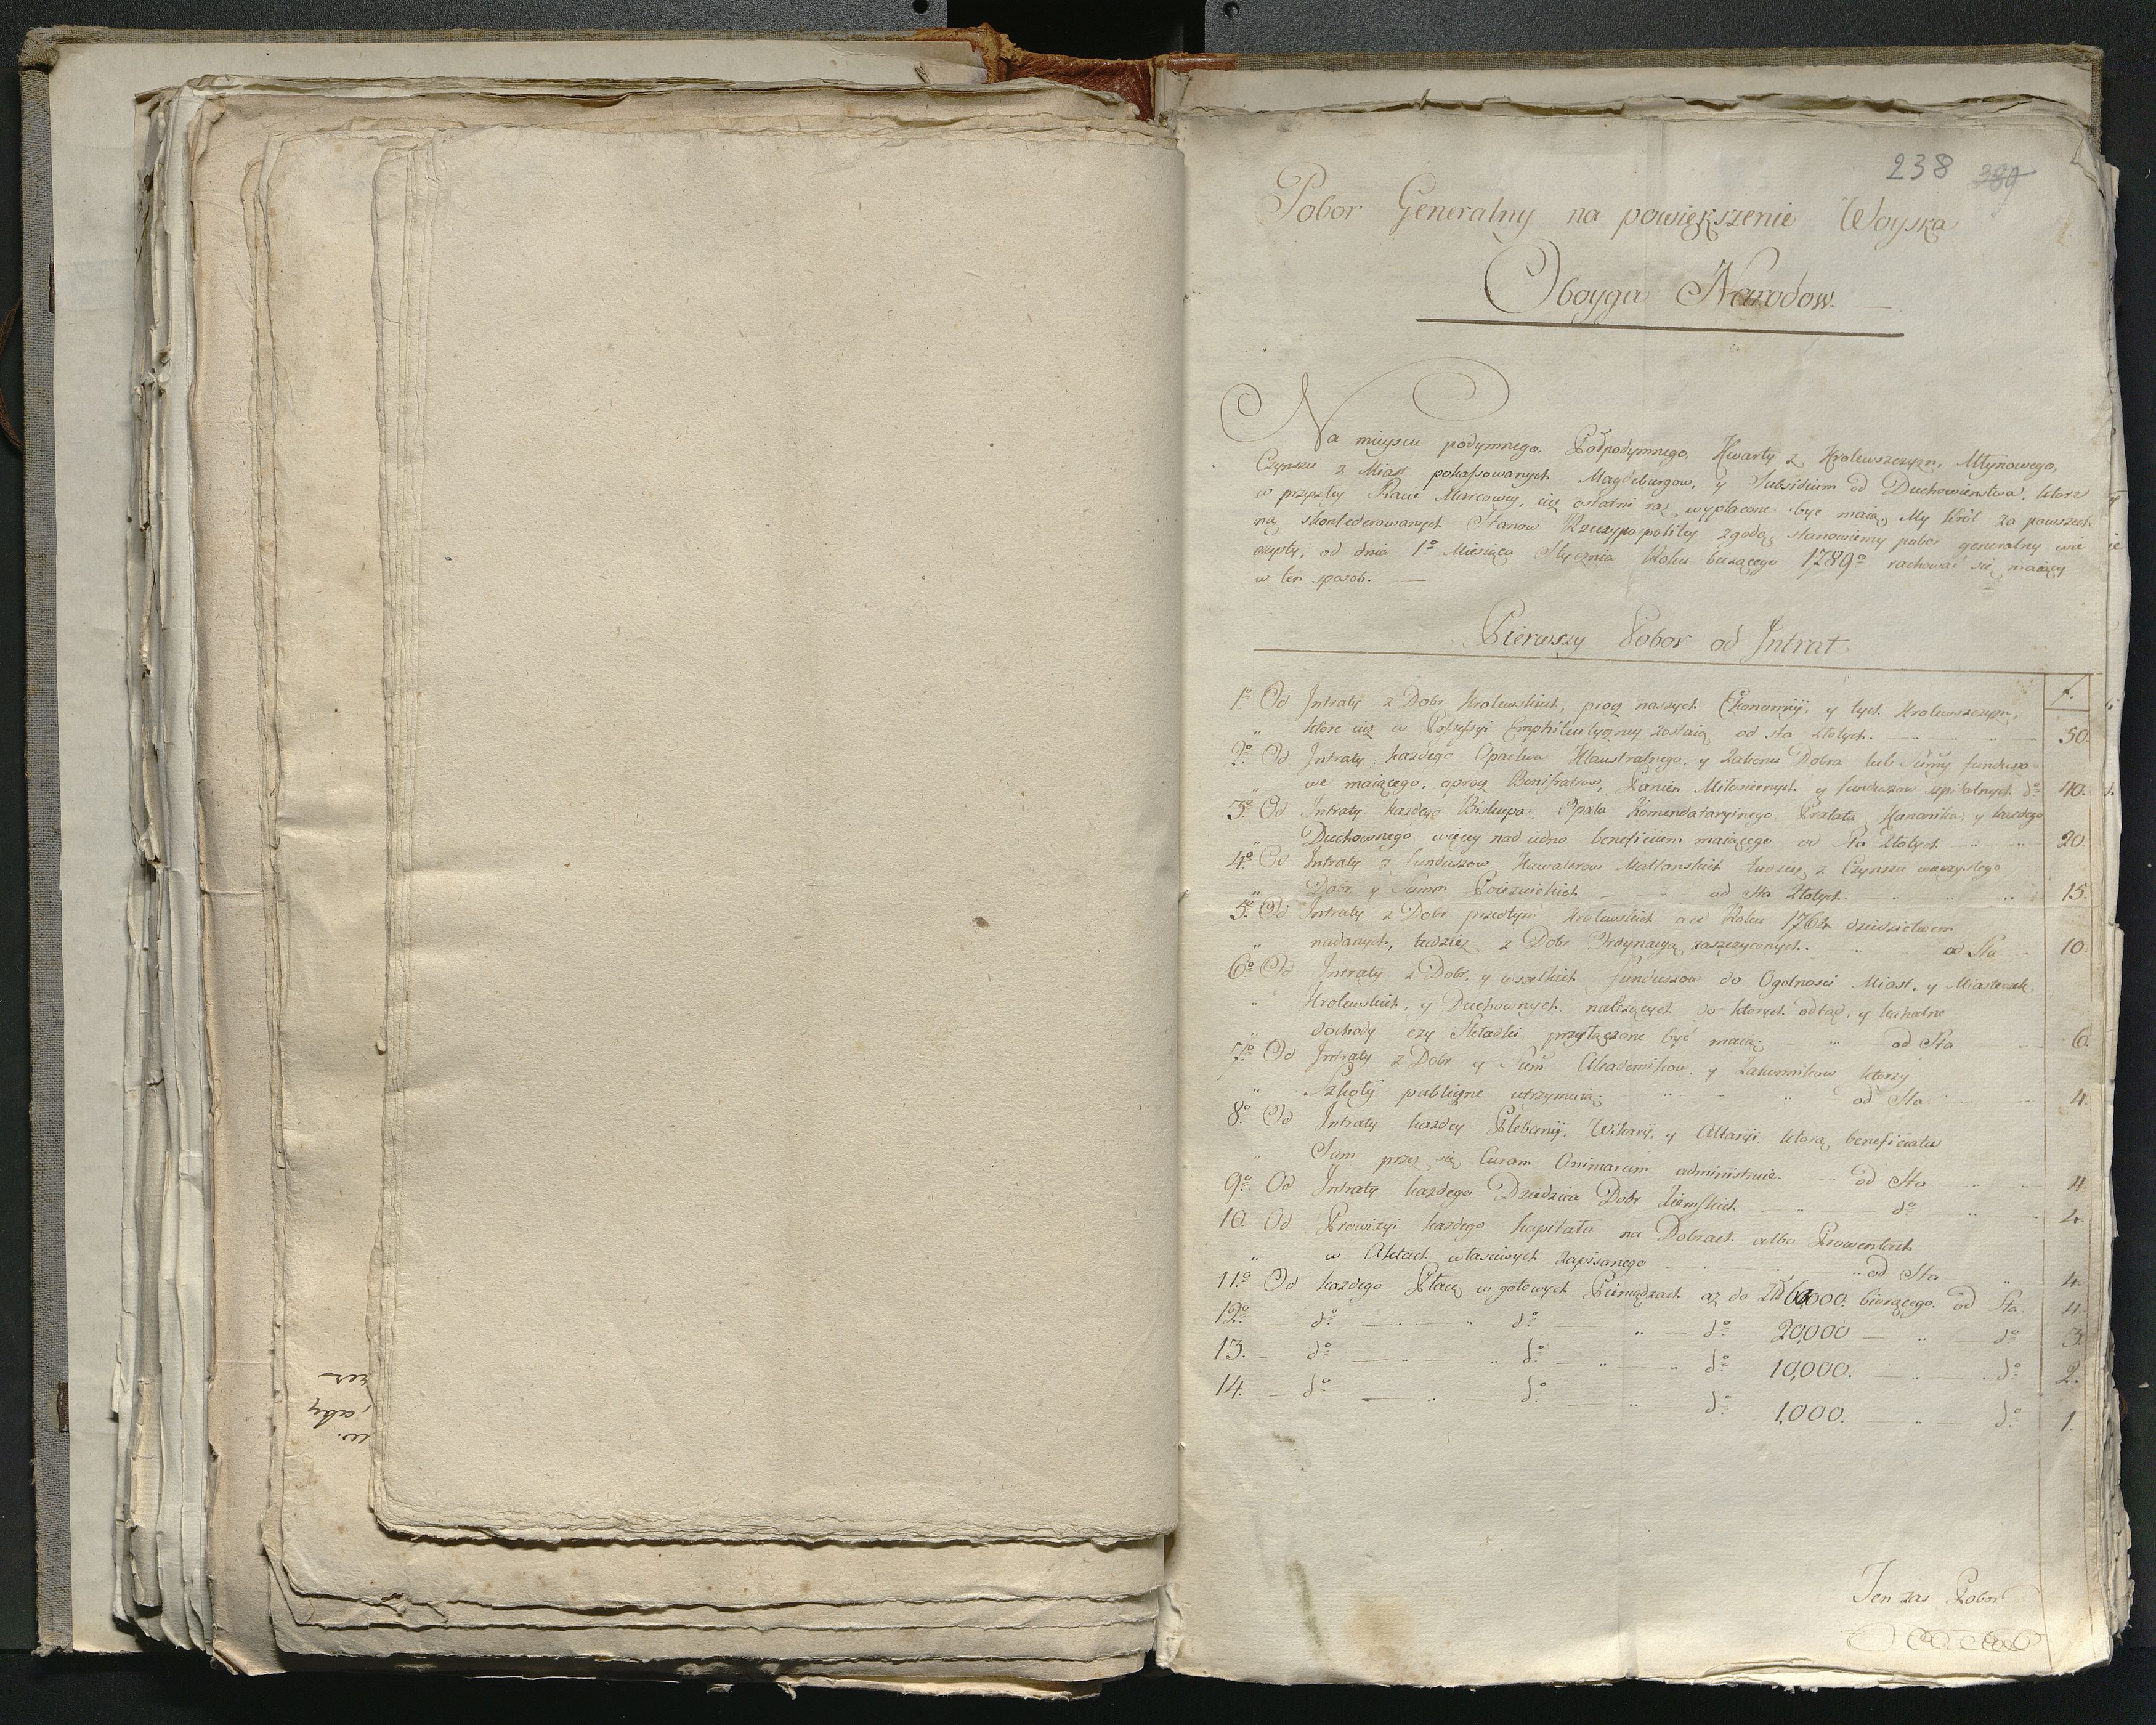 238 389
Pobor Generalny na powiększenie Woyska
Oboyga Narodow.
Na mieysce podymnego, Półpodymnego, Kwarty z Krolewszczyzn, Młynowego,
Czynszu z Miast pokassowanych Magdeburgow, y Subsidium od Duchowienstwa, ktore
w przyszłey Racie Marcowey, iuż ostatni raz wypłacone być maią, My Król za powszech
ną skonfederowanych Stanow Rzeczypospolitey zgodą, stanowiemy pobor generalny wie
czysty, od dnia 1º Miesiąca Stycznia Roku bieżącego 1789º rachować się maiący
w ten sposob. —
Pierwszy Pobor od Intrat
f.
1º Od Intraty z Dobr Krolewskich, procz naszych Ekonomij, y tych Krolewszczyzn,
" ktore iuż w Possessyi Emphiteutyczney zostaią od sta złotych. 50.
2º Od Intraty każdego Opactwa Klaustralnego, y Zakonu Dobra lub Summy funduszo=
" we maiącego, oprocz Bonifratrow, Panien Miłosiernych y funduszow szpitalnych dº 40.
3º Od Intraty każdego Biskupa, Opata Komendataryinego, Prałata, Kanonika, y każdego
" Duchownego więcey nad iedno beneficium maiącego od Sta Złotych 20.
4º Od Intraty z funduszow Kawalerow Maltanskich tudzież z Czynszu wieczystego
" Dobr y Summ Poiezuickich — od Sta Złotych. 15.
5º Od Intraty z Dobr przedtym Krolewskich od Roku 1764 dziedzictwem
" nadanych, tudzież z Dobr Ordynacyą zaszczyconych. od Sta 10.
6º Od Intraty z Dobr, y wszelkich funduszow do Ogolnosci Miast, y Miasteczek
" Krolewskich, y Duchownych należących do ktorych odtąd, y kahalne
" dochody czy Składki przyłączone być maią od Sta 6.
7º Od Intraty z Dobr y Sum Akademikow, y Zakonnikow ktorzy
" Szkoły publiczne utrzymuią od Sta 4.
8º Od Intraty każdey Plebanij, Wikaryi, y Altaryi, ktorą beneficiatus
" Sam przez się Curam Animarum administruie od Sta 4.
9º Od Intraty każdego Dziedzica Dobr Ziemskich — dº 4.
10. Od Prowizyi każdego kapitału na Dobrach albo Prowentach
" w Aktach własciwych zapisanego od Sta 4.
11º Od każdego Płacę w gotowych Pieniądzach aż do Zł 60,000. biorącego. od Sta. 4.
12º — dº — dº — dº 20,000 — dº 3.
13. — dº — dº — dº 10,000. — dº 2.
14. — dº — dº — dº 1,000. — dº 1.
Ten zas Pobor